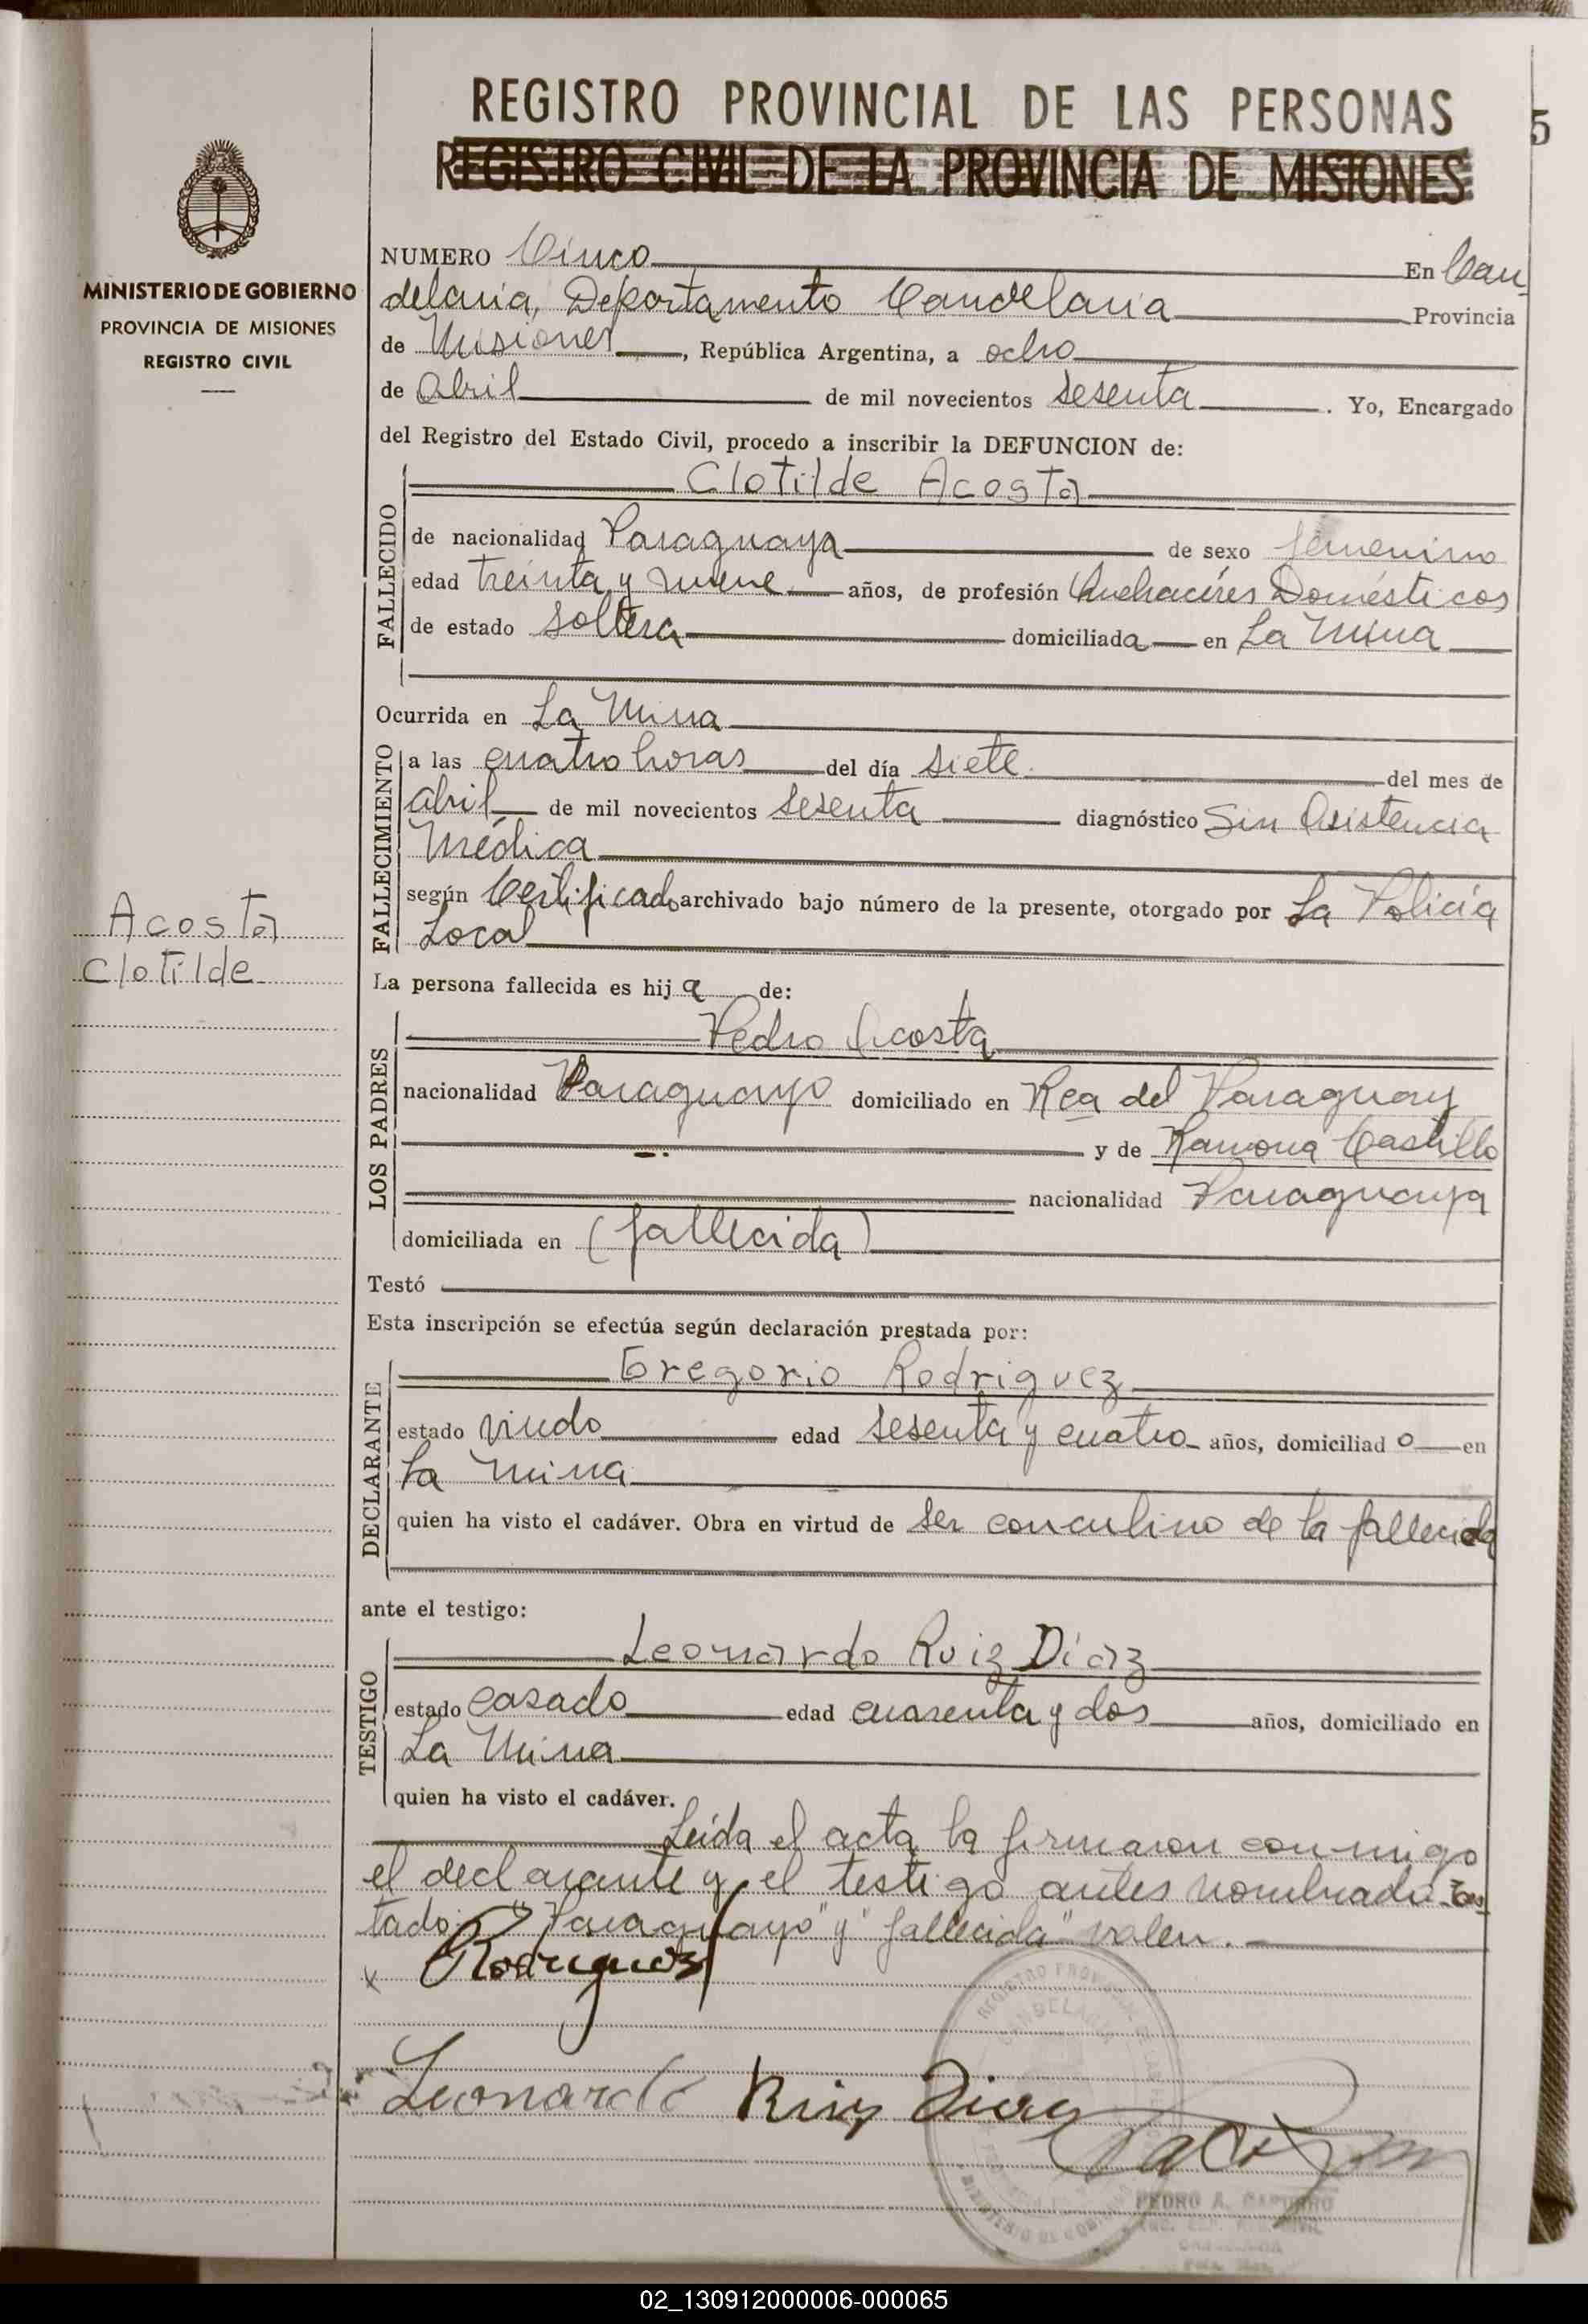 REGISTRO PROVINCIAL DE LAS PERSONAS
REGISTRO CIVIL DE LA PROVINCIA DE MISIONES
5
MINISTERIO DE GOBIERNO
PROVINCIA DE MISIONES
REGISTRO CIVIL
NUMERO Cinco En Can
delaria, Departamento Candelaria Provincia
de Misiones, República Argentina, a ocho
de Abril de mil novecientos sesenta. Yo, Encargado
del Registro del Estado Civil, procedo a inscribir la DEFUNCION de:
FALLECIDO
Clotilde Acosta
de nacionalidad Paraguaya de sexo femenino
edad treinta y nueve años, de profesión Quehacéres Domésticos
de estado soltera domiciliada en La Mina
Ocurrida en La Mina
FALLECIMIENTO
a las cuatro horas del día siete del mes de
abril de mil novecientos sesenta diagnóstico Sin Asistencia
Médica
según Certificado archivado bajo número de la presente, otorgado por La Policía
Local
Acosta
Clotilde
La persona fallecida es hija de:
LOS PADRES
Pedro Acosta
nacionalidad Paraguayo domiciliado en Rca del Paraguay
y de Ramona Castillo
nacionalidad Paraguaya
domiciliada en (fallecida)
Testó
Esta inscripción se efectúa según declaración prestada por:
DECLARANTE
Gregorio Rodriguez
estado viudo edad sesenta y cuatro años, domiciliado en
La Mina
quien ha visto el cadáver. Obra en virtud de ser concubino de la fallecida
ante el testigo:
TESTIGO
Leonardo Ruiz Díaz
estado casado edad cuarenta y dos años, domiciliado en
La Mina
quien ha visto el cadáver.
Leída el acta la firmaron conmigo
el declarante y el testigo antes nombrado
tado: "Paraguayo" y "fallecida" valen.
x Rodriguez
Leonardo Ruiz Diaz
PEDRO A. CAPURRO
02_130912000006-000065